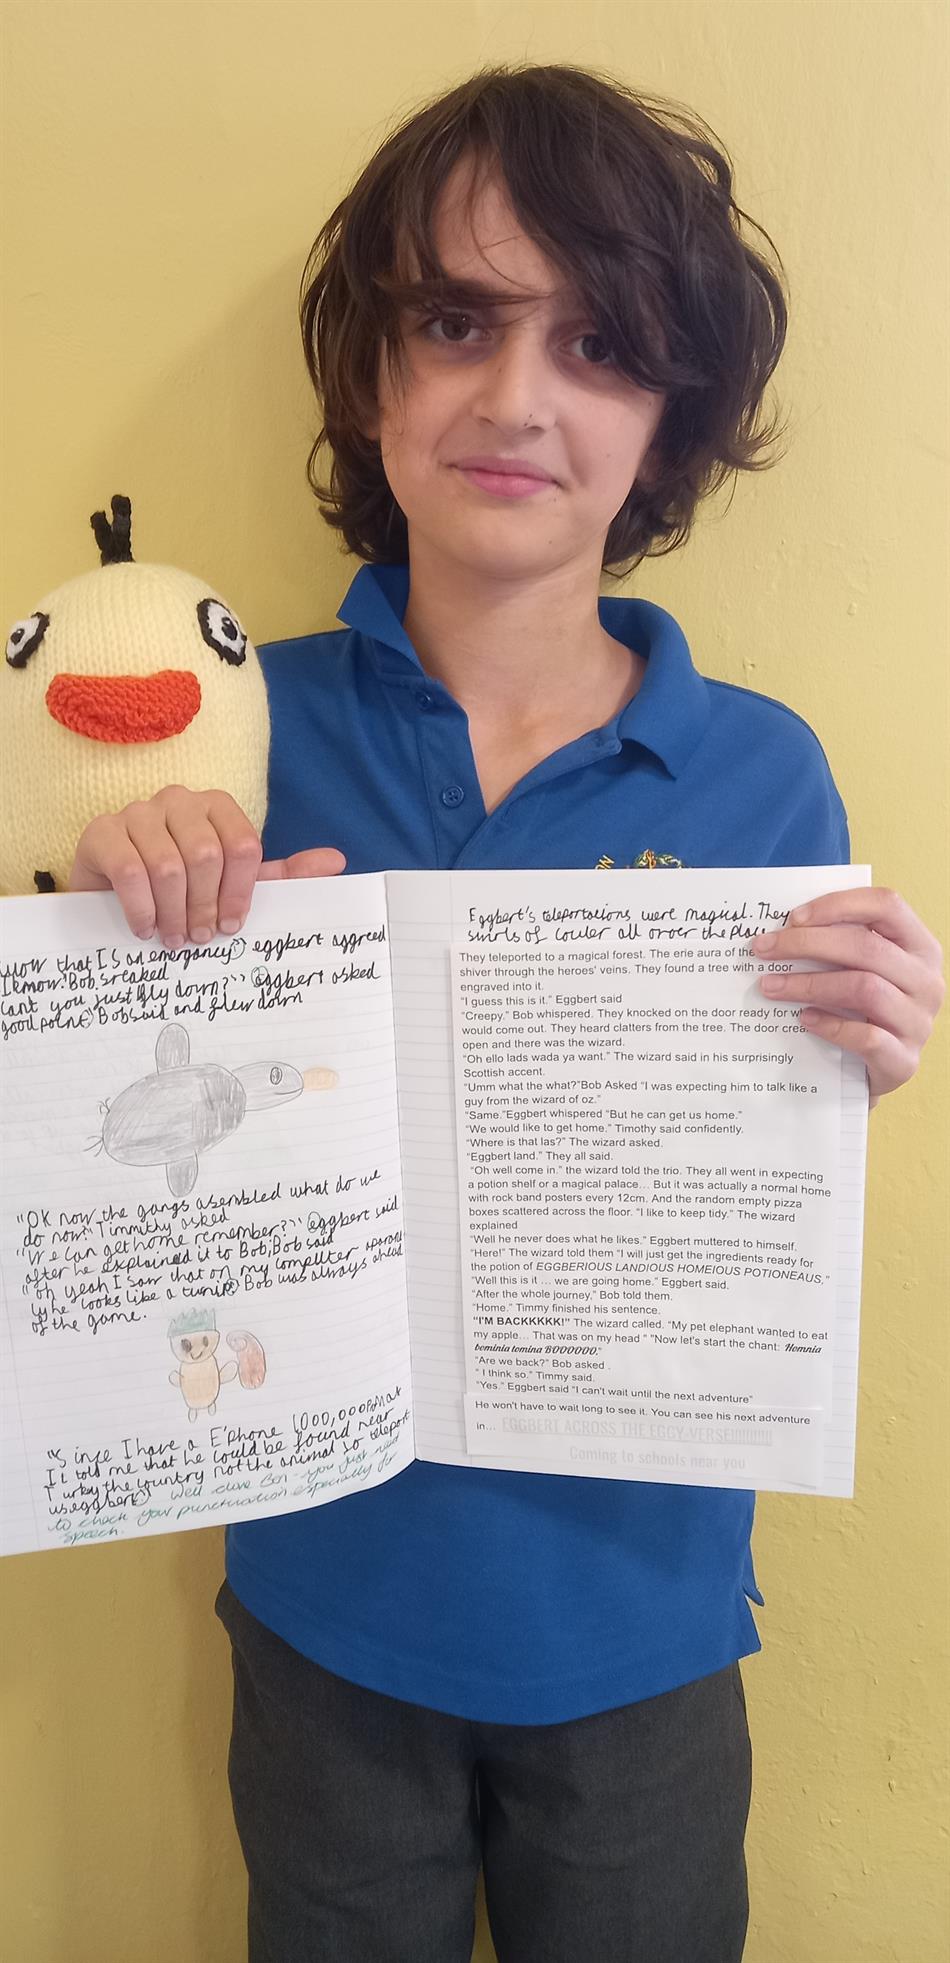 now that Is an emergancy" eggbert aggreed
I know." Bob, sreaked
cant you just fly down?" eggbert asked
good point" Bob said and flew down
"OK now the gangs asembled what do we
do now" Timmithy asked
"We can get home remember?" eggbert said
after he explained it to Bob, Bob said
"oh yeah I saw that on my computter aparent
ly he looks like a turnip" Bob was always ahead
of the game.
"Since I have a E'phone 1000,000 that
It told me that he could be found near
Turkey the country not the animal so teleport
us eggbert" Well done you just need
to check your punctuation especially for
speech.
Eggbert's teleportacions were magical. They
swirls of couler all over the place
They teleported to a magical forest. The erie aura of the
shiver through the heroes' veins. They found a tree with a door
engraved into it.
"I guess this is it." Eggbert said
"Creepy." Bob whispered. They knocked on the door ready for
would come out. They heard clatters from the tree. The door
open and there was the wizard.
"Oh ello lads wada ya want." The wizard said in his surprisingly
Scottish accent.
"Umm what the what?"Bob Asked "I was expecting him to talk like a
guy from the wizard of oz."
"Same."Eggbert whispered "But he can get us home."
"We would like to get home." Timothy said confidently.
"Where is that las?" The wizard asked.
"Eggbert land." They all said.
"Oh well come in." the wizard told the trio. They all went in expecting
a potion shelf or a magical palace... But it was actually a normal home
with rock band posters every 12cm. And the random empty pizza
boxes scattered across the floor. "I like to keep tidy." The wizard
explained
"Well he never does what he likes." Eggbert muttered to himself.
"Here!" The wizard told them "I will just get the ingredients ready for
the potion of EGGBERIOUS LANDIOUS HOMEIOUS POTIONEAUS,"
"Well this is it ... we are going home." Eggbert said.
"After the whole journey," Bob told them.
"Home." Timmy finished his sentence.
"I'M BACKKKKK!" The wizard called. "My pet elephant wanted to eat
my apple... That was on my head " "Now let's start the chant: Homnia
bominia tomina BOOOOOO."
"Are we back?" Bob asked .
" I think so." Timmy said.
"Yes." Eggbert said "I can't wait until the next adventure"
He won't have to wait long to see it. You can see his next adventure
in... EGGBERT ACROSS THE EGGY-VERSE!!!!!!!!
Coming to schools near you